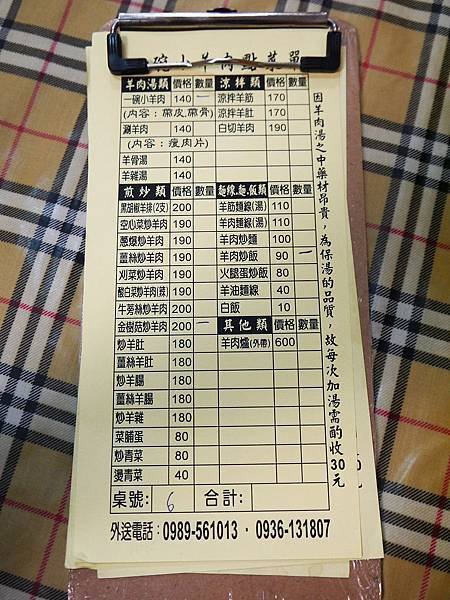 碗小羊肉點菜單
羊肉湯類 價格 數量 涼拌類 價格 數量
一碗小羊肉 140 一 涼拌羊筋 170
(內容:帶皮.帶骨) 涼拌羊肚 170
涮羊肉 140 白切羊肉 190
(內容:瘦肉片)
羊骨湯 140
羊雜湯 140
煎炒類 價格 數量 麵線.麵.飯類 價格 數量
黑胡椒羊排(2支) 200 羊筋麵線(湯) 110
空心菜炒羊肉 190 羊肉麵線(湯) 110
蔥爆炒羊肉 190 羊肉炒麵 100
薑絲炒羊肉 190 羊肉炒飯 90 一
刈菜炒羊肉 190 火腿蛋炒飯 80
酸白菜炒羊肉(辣) 190 羊油麵線 40
牛蒡絲炒羊肉 200 白飯 10
金樹菇炒羊肉 200 一 其他類 價格 數量
炒羊肚 180 羊肉爐(外帶) 600
薑絲羊肚 180
炒羊腸 180
薑絲羊腸 180
炒羊雜 180
菜脯蛋 80
炒青菜 80
燙青菜 40
桌號: 6 合計:
外送電話:0989-561013・0936-131807
因羊肉湯之中藥材昂貴,為保湯的品質,故每次加湯需酌收30元